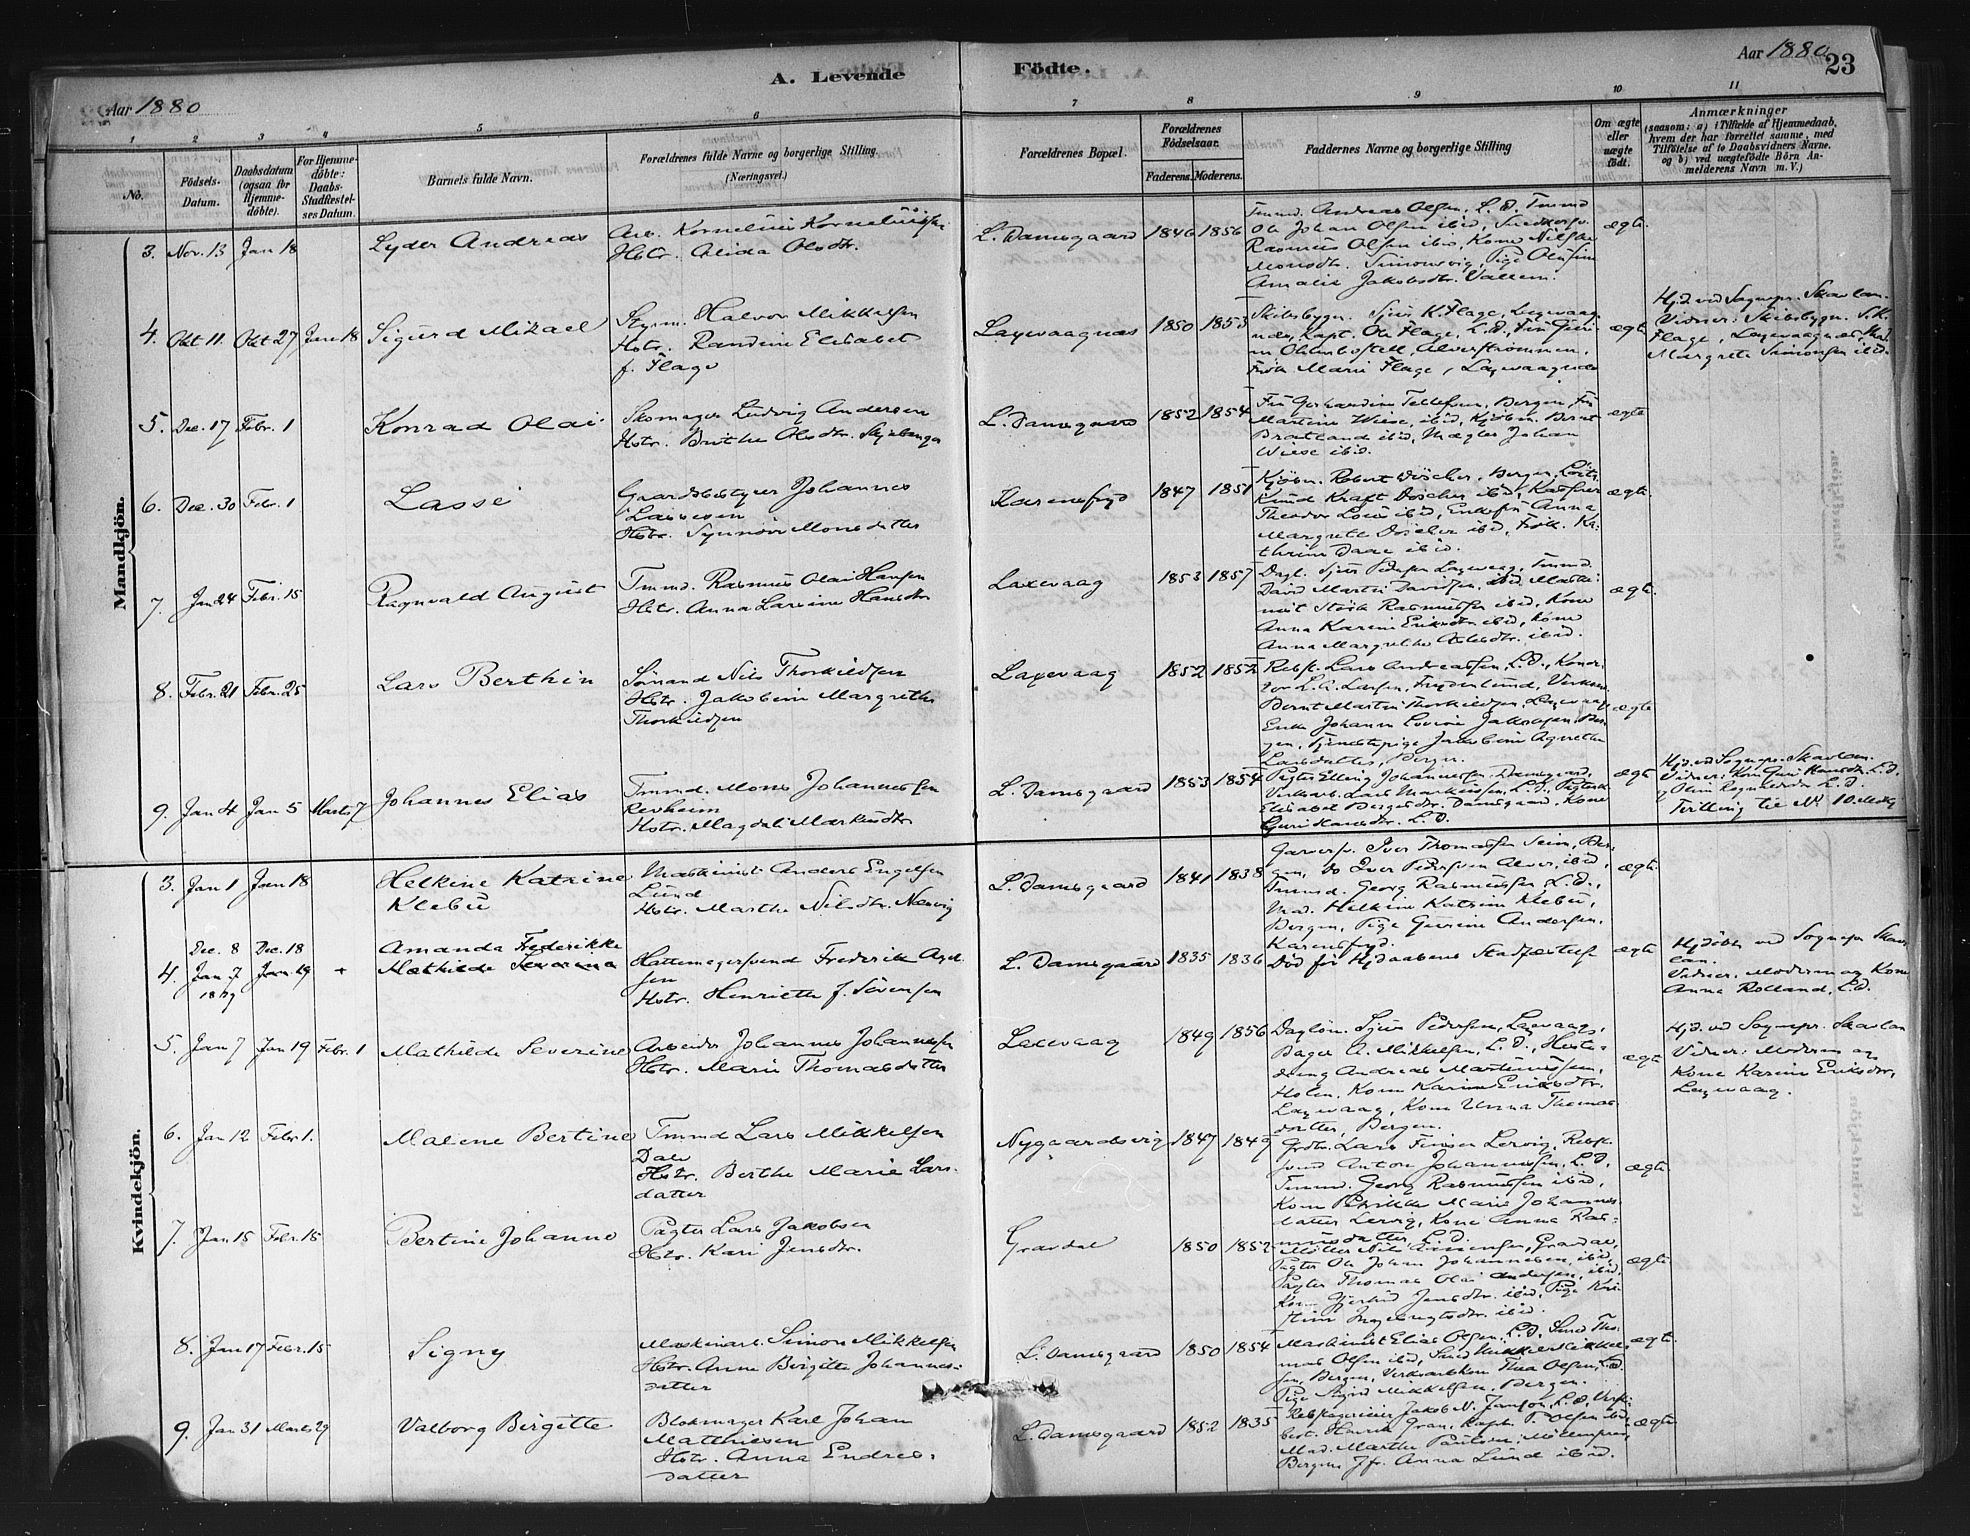 A. Levende Födte.
Aar 1880
Aar 1880
23
1 2 3 4 5 6 7 8 9 10 11
No.
Födsels-Datum.
Daabsdatum (ogsaa for Hjemme-döbte).
For Hjemme-döbte: Daabs-Stadfæstel-ses Datum.
Barnets fulde Navn.
Forældrenes fulde Navne og borgerlige Stilling. (Næringsvei.)
Forældrenes Bopæl.
Forældrenes Födselsaar. Faderens. Moderens.
Faddernes Navne og borgerlige Stilling
Om ægte eller uægte födt.
Anmærkninger
(saasom: a) i Tilfælde af Hjemmedaab,
hvem der har forrettet samme, med
Tilföielse af to Daabsvidners Navne,
og b) ved uægtefödte Börn An-
melderens Navn m. V.)
Mandkjön.
3. Nov. 13 Jan 18 Lyder Andreas
Arb. Kornelius
Hstr. Alida Olsdtr.
L. Damsgaard 1846 1856
Tmmd. Andreas Olsen, L. D. Tmmd
Ole Johan Olsen ibid,
Rasmus Olsen ibid, Kone
Monsdtr. Simonsvig, Pige
Amalie Jakobsdtr.
ægte
4. Okt 11. Okt 27 Jan 18 Sigurd Mikael
Styrm. Halvor Mikkelsen
Hstr. Randine Elisabet
f. Flage
Laxevaagnæs 1850 1853
Skibsbygm. Sjur K. Flage, Laxevaag
næs, Kapt. Ole Flage, L. D., Frü
Alverströmmen,
Frök Marie Flage, Laxevaagnæs
ægte
Hj.d. ved Sognepr. Skavlan.
Vidner: Skibsbygm. S. K.
Flage, Laxevaagnæs, Mad.
Margrete Simonsen ibid.
5. Dec. 17 Febr. 1 Konrad Olai
Skomager Ludvig Andersen
Hstr. Brithe Olsdtr.
L. Damsgaard 1852 1854
Frü Tellefsen, Bergen, Frü
Martine Wiese, ibid, Kjöbm. Bernt
Bratland ibid, Mægler Johan
Wiese ibid.
ægte
6. Dec. 30 Febr. 1 Lasse
Gaardsbestyrer Johannes
Lassesen
Hstr. Synnöve Monsdatter
1847 1851
Kjöbm. Robert Döscher, Bergen,
Knud Kraft Döscher ibid, Kasserer
Theodor ibid, Enkefrü Anna
Margrete Döscher ibid, Frök. Ka-
thrine Daae ibid.
ægte.
7. Jan 24 Febr. 15 Ragnvald August
Tmmd. Rasmus Olai Hansen
Hstr. Anna Larsine Hansdtr
Laxevaag 1853 1857
Dagl. Sjur Pedersen Laxevaag, Tmmd.
David Martin Davidsen, ibid,
Rasmussen ibid, Kone
Anna Karine Eriksdtr ibid, Kone
Anna Margrethe ibid.
ægte.
8. Febr. 21 Febr. 25 Lars Berthin
Sömand Nils Thorkildsen
Hstr. Jakobine Margrethe
Thorkildsen
Laxevaag 1852 1852
Rebsl. Lars Andreassen, L. D.,
L. A. Larsen, Frydenlund,
Bernt Martin Thorkildsen, Laxevaag,
Enke Johanne Jakobsen, Ber-
gen, Tjenestepige Jakobine Agnethe
Larsdatter, Bergen.
ægte
9. Jan 4 Jan 5 Marts 7 Johannes Elias
Tmmd. Mons Johannessen
Revheim
Hstr. Magdali Markusdtr
L. Damsgaard 1853 1854
Pagter Elling Johannessen Damsgaard,
Lars Markussen, L. D.,
Elisabet Bergesdtr. Damsgaard, Kone
Guri Hansdtr. L. D.
ægte
Hj.d. ved Sognepr. Skavlan.
Vidner: Kone Guri Hansdtr. L. D.
L. D.
Tvilling til No 10
Kvindekjön.
3. Jan 1 Jan 18 Helkine Katrine
Klebü
Maskinist Anders Engelsen
Lund
Hstr. Marthe Nilsdtr.
L. Damsgaard 1841 1838
Garversv. Iver Thomassen Seim, Ber-
gen, do Iver Pedersen Alver, ibid,
Tmmd. Georg Rasmussen L. D.,
Mad. Helkine Katrine Klebü,
Bergen, Pige Andersen,
ægte.
Dec. 8 Dec. 18 Amanda Frederikke
4. Jan 7 Jan 19 + Mathilde Severine
1879
Hattemagersvend Frederik
sen
Hstr. Henriette f. Sörensen
L. Damsgaard 1835 1836
Död för Hj.daabens Stadfæstelse
ægte
Hj.döbt ved Sognepr Skav-
lan.
Vidner: Moderen og Kone
Anna Rolland, L. D.
5. Jan 7 Jan 19 Febr. 1 Mathilde Severine
Arbeider Johannes Johannesen
Hstr. Marie Thomasdatter
Laxevaag 1849 1856
Daglön. Sjur Pedersen, Laxevaag,
Bager A. Mikkelsen, L. D.,
dreng Andreas Martinussen,
Holen, Kone Karine Eriksdtr.
Laxevaag, Kone Unna Thomas-
datter, Bergen.
ægte
Hj.d. ved Sognepr. Skavlan
Vidner: Moderen og
Kone Karine Eriksdtr,
Laxevaag.
6. Jan 12 Febr 1. Malene Bertine
Tmmd Lars Mikkelsen
Dale
Hstr. Berthe Marie Lars-
datter
Nygaardsvig 1847 1849
Lars Lervig,
Anton Johannessen, L. D.,
Tmmd. Georg Rasmussen ibid,
Kone Marie Johannes-
datter Lervig, Kone Anna Ras-
musdatter, L. D.
ægte.
7. Jan 15 Febr. 15 Bertine Johanne
Pagter Lars Jakobsen
Hstr. Kari Jensdtr.
Gravdal 1850 1852
Möller Nils Gravdal,
Pagter Ole Johan Johannesen, ibid,
Pagter Thomas Olai Andersen, ibid,
Kone Gjertrud Jensdtr. ibid, Pige
ibid.
ægte.
8. Jan 17 Febr. 15 Signy
Maskinarb. Simon Mikkelsen
Hstr. Anne Birgitte Johannes-
datter
L. Damsgaard 1850 1854
Maskinist Elias Olsen, L. D., Smed Tho-
mas Olsen ibid, Smed Mikkel Mikkel-
sen, Bergen, Thea Olsen, L. D.
Pige Sigrid Mikkelsen, Bergen.
ægte
9. Jan 31 Marts 29 Valborg Birgitte
Blokmager Karl Johan
Matthiesen
Hstr. Anna Endres-
datter
L. Damsgaard 1852 1835
Jakob N. Janson, L. D.,
Henrik Gran, Kapt. T. Olsen ibid,
Mad. Marthe Möllenpris,
Bergen, Jfr. Anna Lund ibid.
ægte